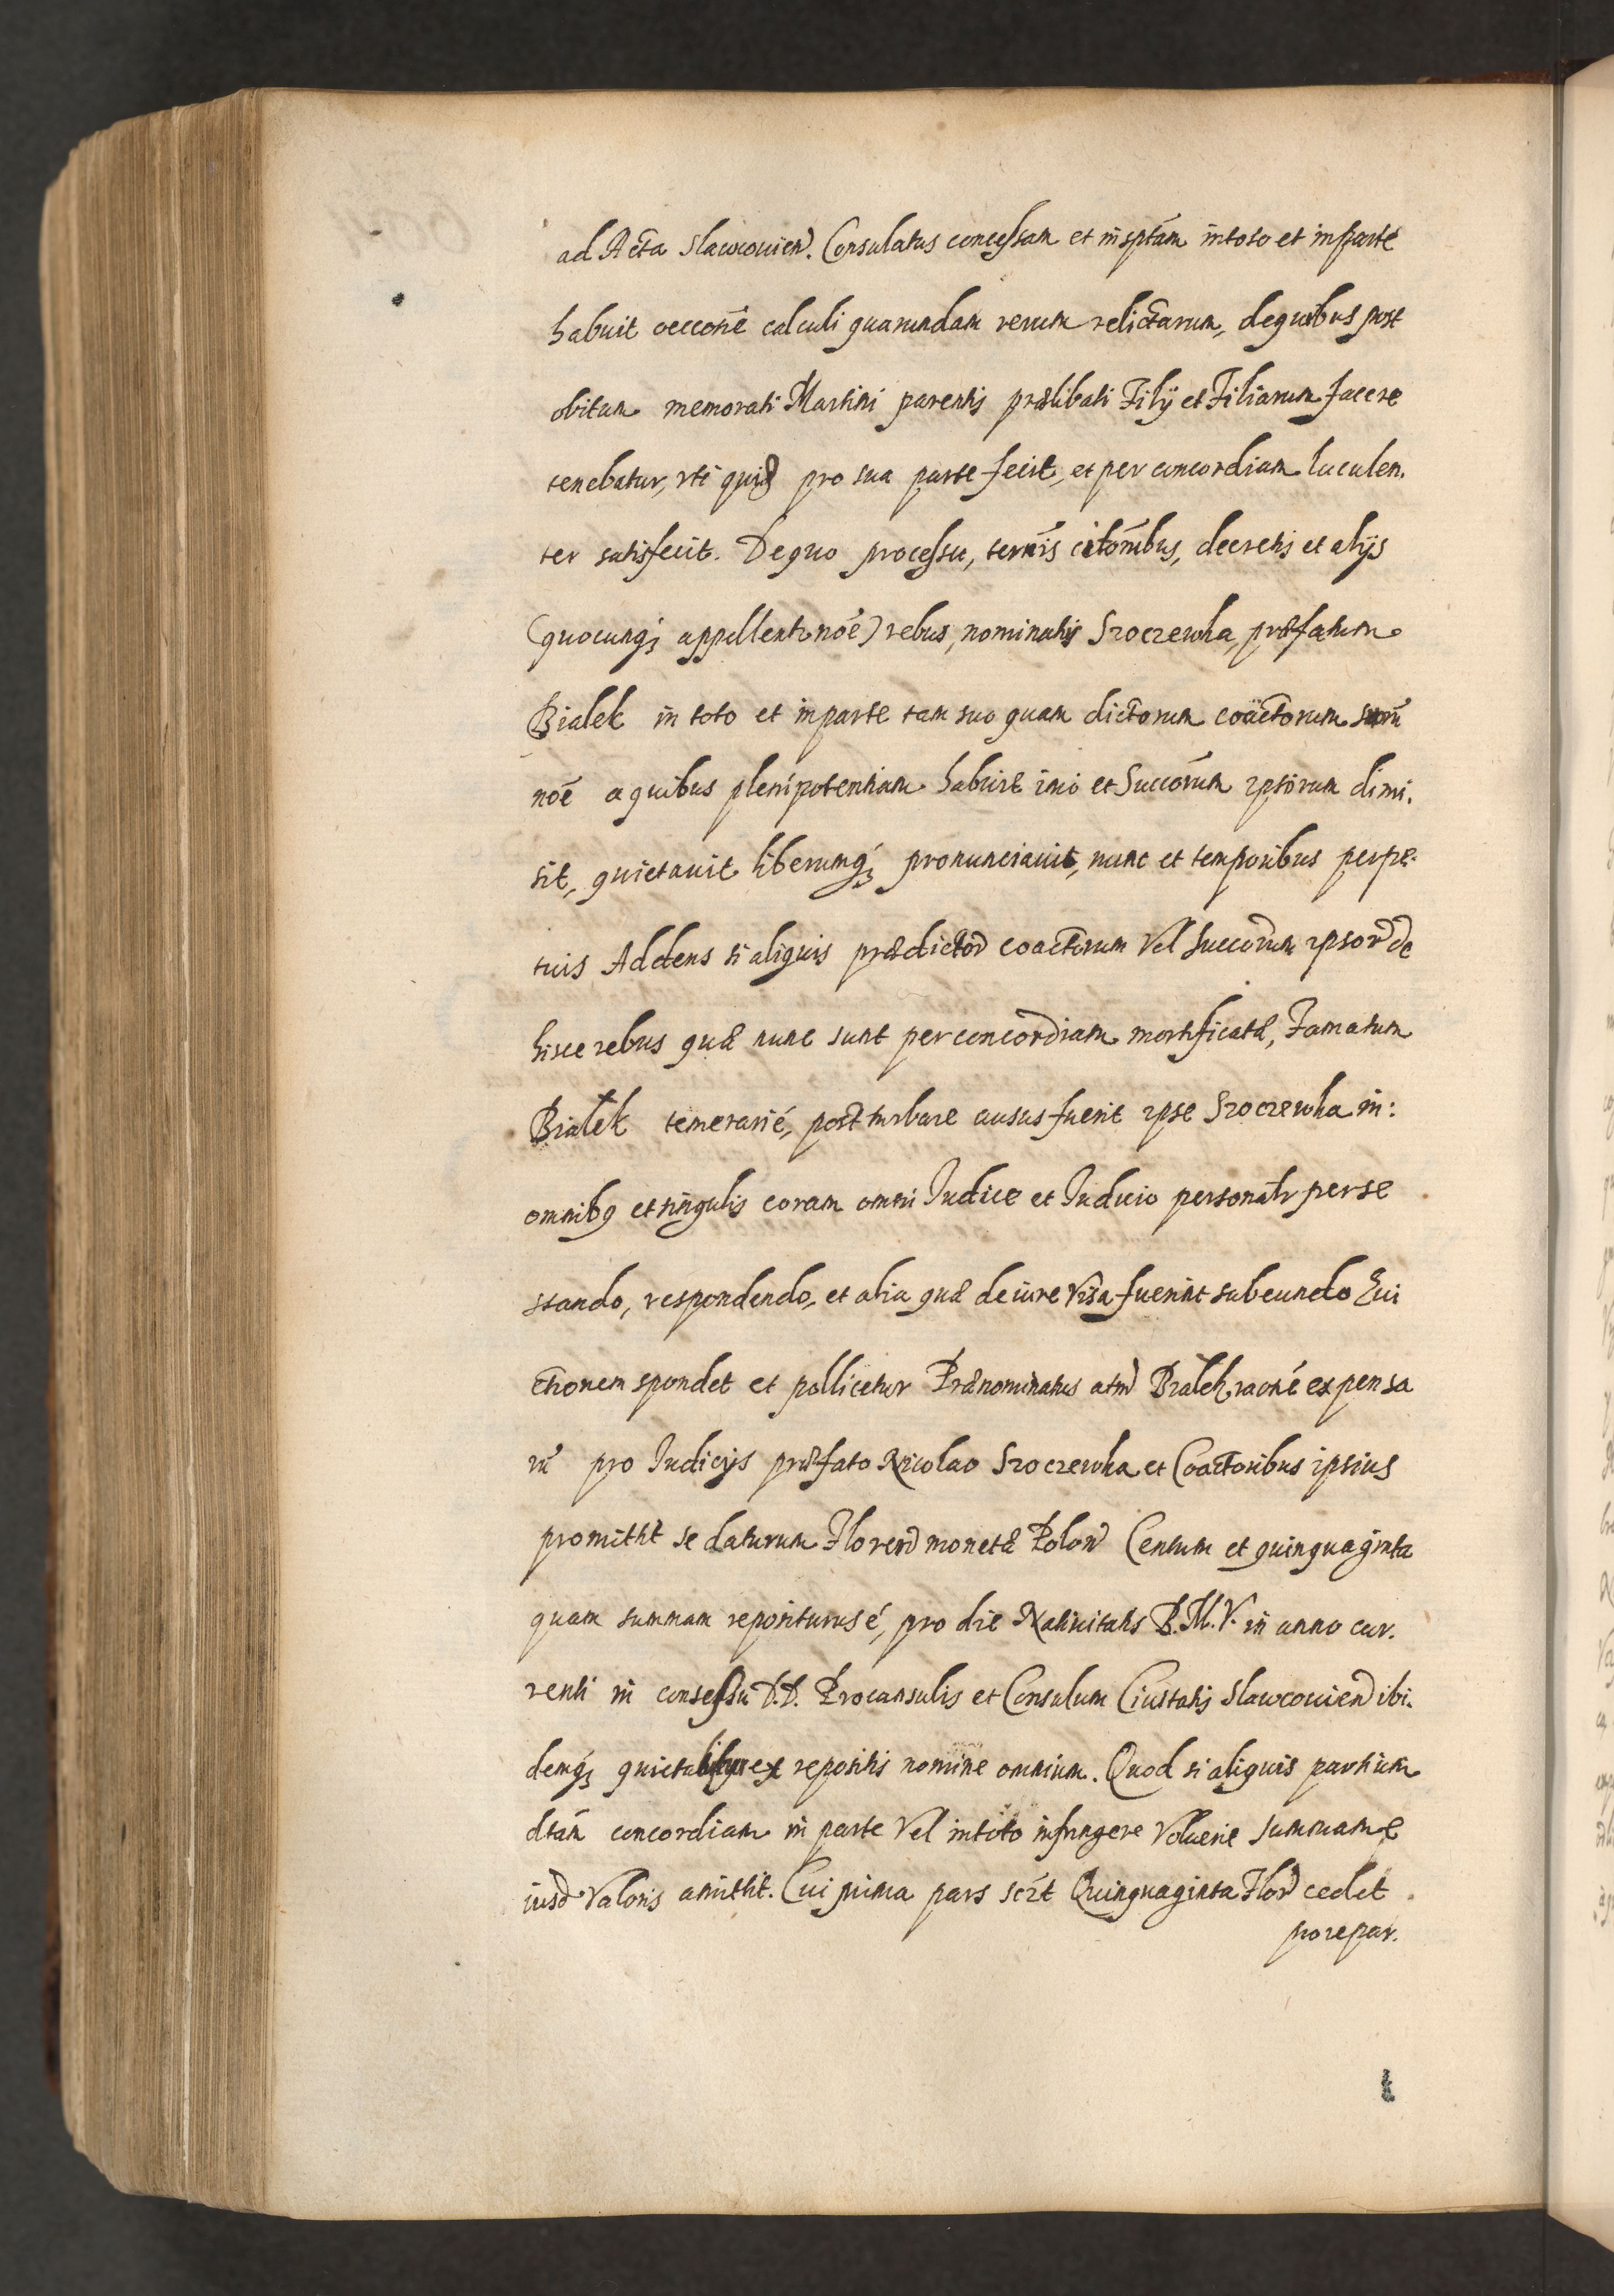 ad Acta Slawcouien. Consulatus concessam et inscptam in toto et in parte
habuit occone calculi quarundam rerum relictarum, de quibus post
obitum memorati Martini parentis prælibati Filij et Filiarum facere
tenebatur, vti quidē pro sua parte fecit, et per concordiam luculen.
ter satisfecit. De quo processu, terminis citonibus, decretis et alijs
(quocunq; appellentr noe) rebus, nominatus Szoczewka, præfatum
Bialek in toto et in parte tam suo quam dictorum coactorum suorū
noe a quibus plenipotentiam habuit imo et Succorum ipsorum dimi.
sit, quietauit liberumq; pronunciauit, nunc et temporibus perpe.
tuis Addens si aliquis prædictor coactorum vel Succorum ipsor de
hisce rebus quæ nunc sunt per concordiam mortificatæ, Famatum
Bialek temerarié, post turbare ausus fuerit ipse Szoczewka in:
omnibq et singulis coram omni Iudice et Iudicio personalr per se
stando, respondendo, et alia quæ de iure visa fuerint subeundo Eui
ctionem spondet et pollicetur Prænominatus atm Bialek raoné expensa
rū pro Iudicijs præfato Nicolao Szoczewka et Coactoribus ipsius
promittit se daturum Floren monetæ Polon Centum et quinquaginta
quam summam repositurus é, pro die Natiuitatis B.M.V. in anno cur.
renti in consessu D.D. Proconsulis et Consulum Ciuitatis Slawcouien ibi.
demq; repositis nomine omnium. Quod si aliquis partium
dtam concordiam in parte vel in toto infringere voluerit summam e
iusd valoris amittit. Cui prima pars sczt Quinquaginta Flor cedet
pro repar.